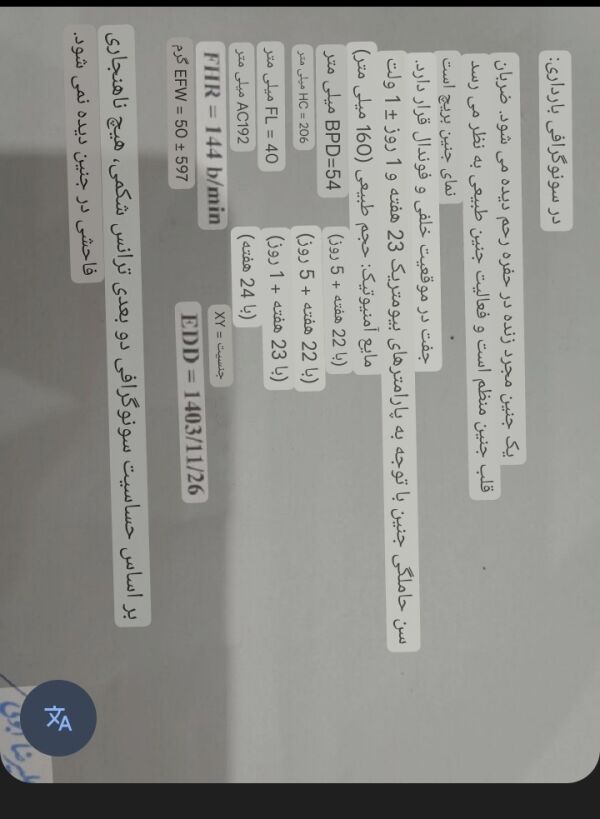 در سونوگرافی بارداری:
یک جنین مجرد زنده در حفره رحم دیده می شود. ضربان
قلب جنین منظم است و فعالیت جنین طبیعی به نظر می رسد
نمای جنین بریچ است
جفت در موقعیت خلفی و فوندال قرار دارد.
سن حاملگی جنین با توجه به پارامترهای بیومتریک 23 هفته و 1 روز ± 1 ولت
مایع آمنیوتیک: حجم طبیعی (160 میلی متر)
BPD=54 میلی متر (با 22 هفته + 5 روز)
HC = 206 میلی متر (با 22 هفته + 5 روز)
FL = 40 میلی متر (با 23 هفته + 1 روز)
AC192 میلی متر (با 24 هفته)
FHR = 144 b/min جنسیت = XY
EFW = 50 ± 597 گرم EDD = 1403/11/26
بر اساس حساسیت سونوگرافی دو بعدی ترانس شکمی، هیچ ناهنجاری
فاحشی در جنین دیده نمی شود.